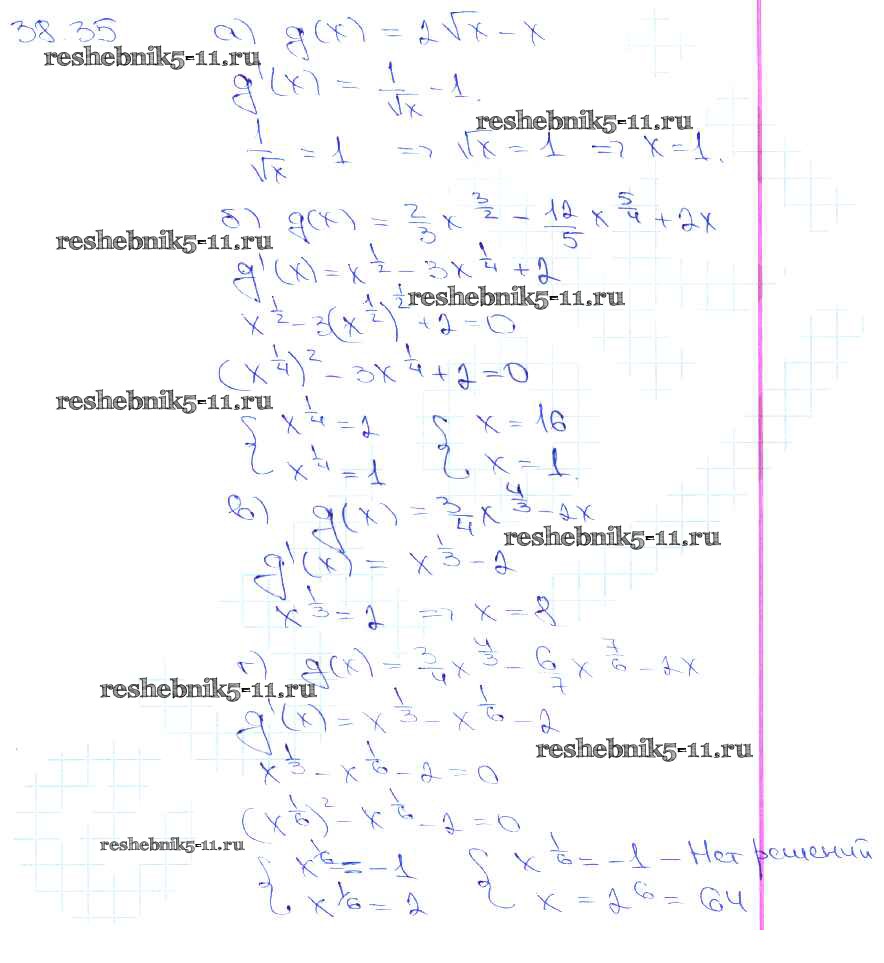 38.35 а) g(x) = 2√x - x
reshebnik5-11.ru
g'(x) = 1/√x - 1.
reshebnik5-11.ru
1/√x = 1 => √x = 1 => x = 1.
б) g(x) = 2/3 x^(3/2) - 12/5 x^(5/4) + 2x
reshebnik5-11.ru
g'(x) = x^(1/2) - 3x^(1/4) + 2
reshebnik5-11.ru
x^(1/2) - 3(x^(1/2))^(1/2) + 2 = 0
(x^(1/4))^2 - 3x^(1/4) + 2 = 0
reshebnik5-11.ru
{ x^(1/4) = 2 { x = 16
x^(1/4) = 1 x = 1.
в) g(x) = 3/4 x^(4/3) - 2x
reshebnik5-11.ru
g'(x) = x^(1/3) - 2
x^(1/3) = 2 => x = 8
г) g(x) = 3/4 x^(4/3) - 6/7 x^(7/6) - 2x
reshebnik5-11.ru
g'(x) = x^(1/3) - x^(1/6) - 2
reshebnik5-11.ru
x^(1/3) - x^(1/6) - 2 = 0
(x^(1/6))^2 - x^(1/6) - 2 = 0
reshebnik5-11.ru
{ x^(1/6) = -1 { x^(1/6) = -1 – Нет решений
x^(1/6) = 2 x = 2^6 = 64